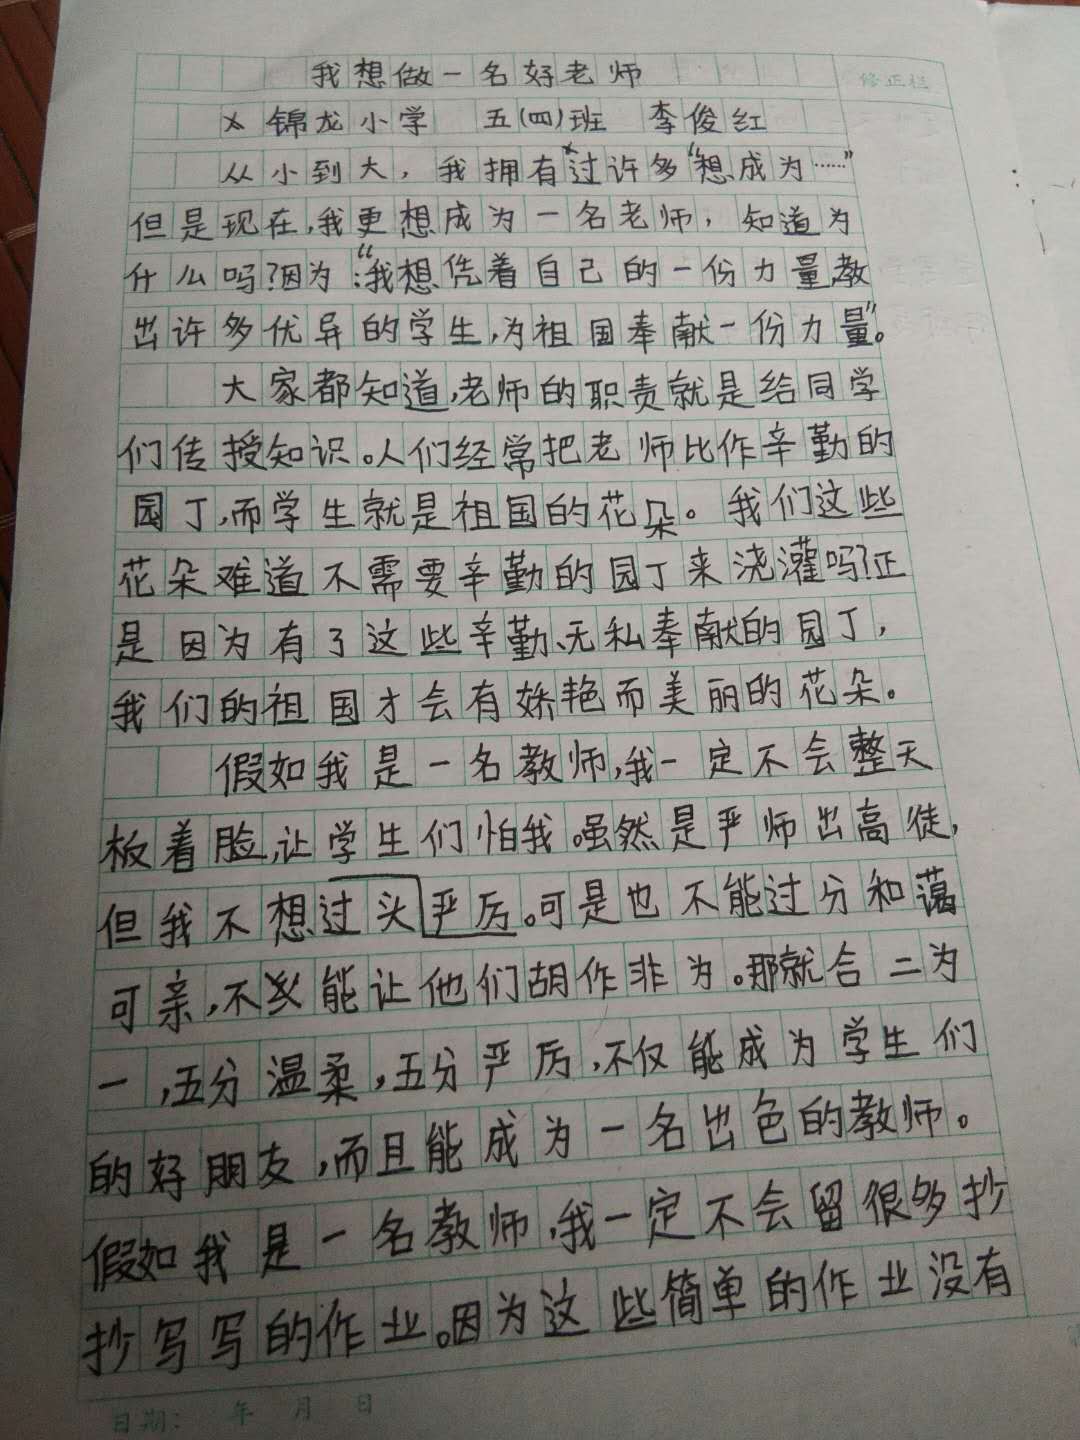 我想做一名好老师
修正栏
锦龙小学 五(四)班 李俊红
从小到大，我拥有过许多“想成为……”
但是现在，我更想成为一名老师，知道为
什么吗？因为：“我想凭着自己的一份力量教
出许多优异的学生，为祖国奉献一份力量”。
大家都知道，老师的职责就是给同学
们传授知识。人们经常把老师比作辛勤的
园丁，而学生就是祖国的花朵。我们这些
花朵难道不需要辛勤的园丁来浇灌吗？正
是因为有了这些辛勤、无私奉献的园丁，
我们的祖国才会有娇艳而美丽的花朵。
假如我是一名教师，我一定不会整天
板着脸，让学生们怕我。虽然是严师出高徒，
但我不想过头严厉。可是也不能过分和蔼
可亲，不能让他们胡作非为。那就合二为
一，五分温柔，五分严厉，不仅能成为学生们
的好朋友，而且能成为一名出色的教师。
假如我是一名教师，我一定不会留很多抄
抄写写的作业。因为这些简单的作业没有
日期： 年 月 日